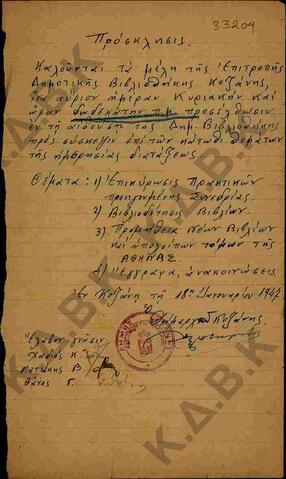 33204
Πρόσκλησις
Καλούνται τα μέλη της Επιτροπής
Δημοτικής Βιβλιοθήκης Κοζάνης,
ίνα αύριον ημέραν Κυριακήν και
ώραν δωδεκάτην π.μ. προσέλθωσιν
εν τη αιθούση της Δημ. Βιβλιοθήκης
προς σύσκεψιν επί των κάτωθι θεμάτων
της ημερησίας διατάξεως.
Θέματα: 1) Επικύρωσις Πρακτικών
προηγουμένης Συνεδρίας.
2) Βιβλιοδέτησις Βιβλίων.
3) Προμήθεια νέων Βιβλίων
και υπολοίπων τόμων της
ΑΘΗΝΑΣ
4) Έγγραφα, ανακοινώσεις
Εν Κοζάνη τη 18η Ιανουαρίου 1947
Ο
Δήμαρχος Κοζάνης
Έλαβον γνώσιν
Κ.
Β.
Γ.
Κ.Δ.Β.Κ